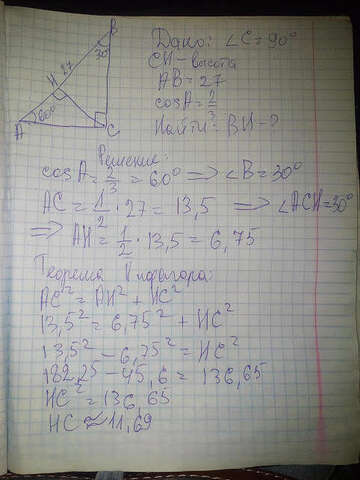 B
30°
27
H
60°
A
C
Дано: ∠C=90°
CH-высота
AB=27
cosA=2/3
Найти: BH-?
Решение:
cosA=2/3=60° ⟹ ∠B=30°
AC=1/2·27=13,5 ⟹ ∠ACH=30°
⟹ AH=1/2·13,5=6,75
Теорема Пифагора:
AC²=AH²+HC²
13,5²=6,75²+HC²
13,5²-6,75²=HC²
182,25-45,6=136,65
HC²=136,65
HC≈11,69